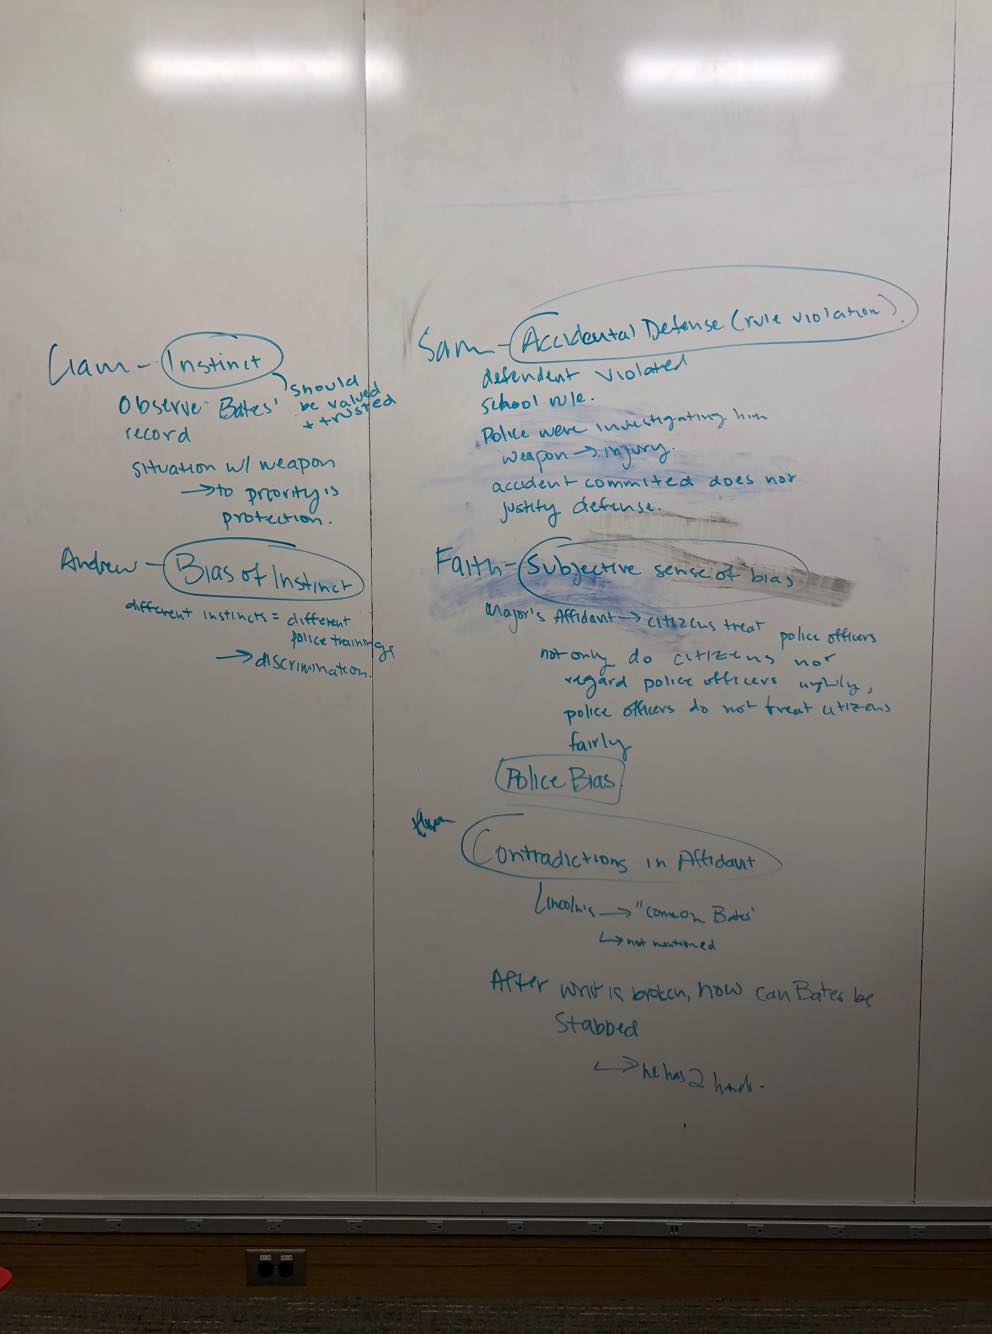 Liam - Instinct
should
be valued
+ trusted
Observe Bates'
record
situation w/ weapon
→ to priority is
protection.
Andrew - Bias of Instinct
different instincts = different
police trainings
→ discrimination.
Sam - Accidental Defense (rule violation).
defendent violated
school rule.
Police were investigating him
weapon → injury.
accident commited does not
justify defense.
Faith - Subjective sense of bias
Major's Affidant → citizens treat police officers
not only do citizens nor
regard police officers highly,
police officers do not treat citizens
fairly
Police Bias
Contradictions in Affidant
Lincoln's → "come on Bates"
↳ not mentioned
After wrist is broken, how can Bates be
Stabbed
↳ he has 2 hands.